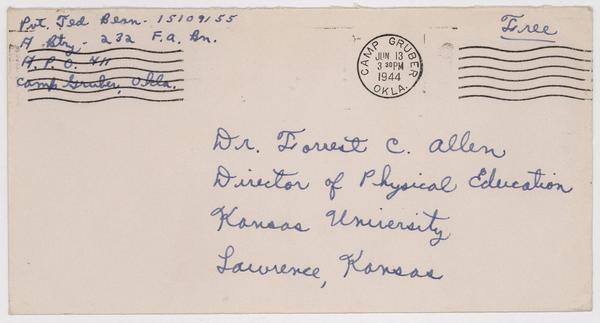 Pvt. Ted Bean - 15109155
A Btry - 232 F.A. Bn.
A. P. O. 411
Camp Gruber, Okla.
CAMP GRUBER
JUN 13
3 30 PM
1944
OKLA.
Free
Dr. Forrest C. Allen
Director of Physical Education
Kansas University
Lawrence, Kansas